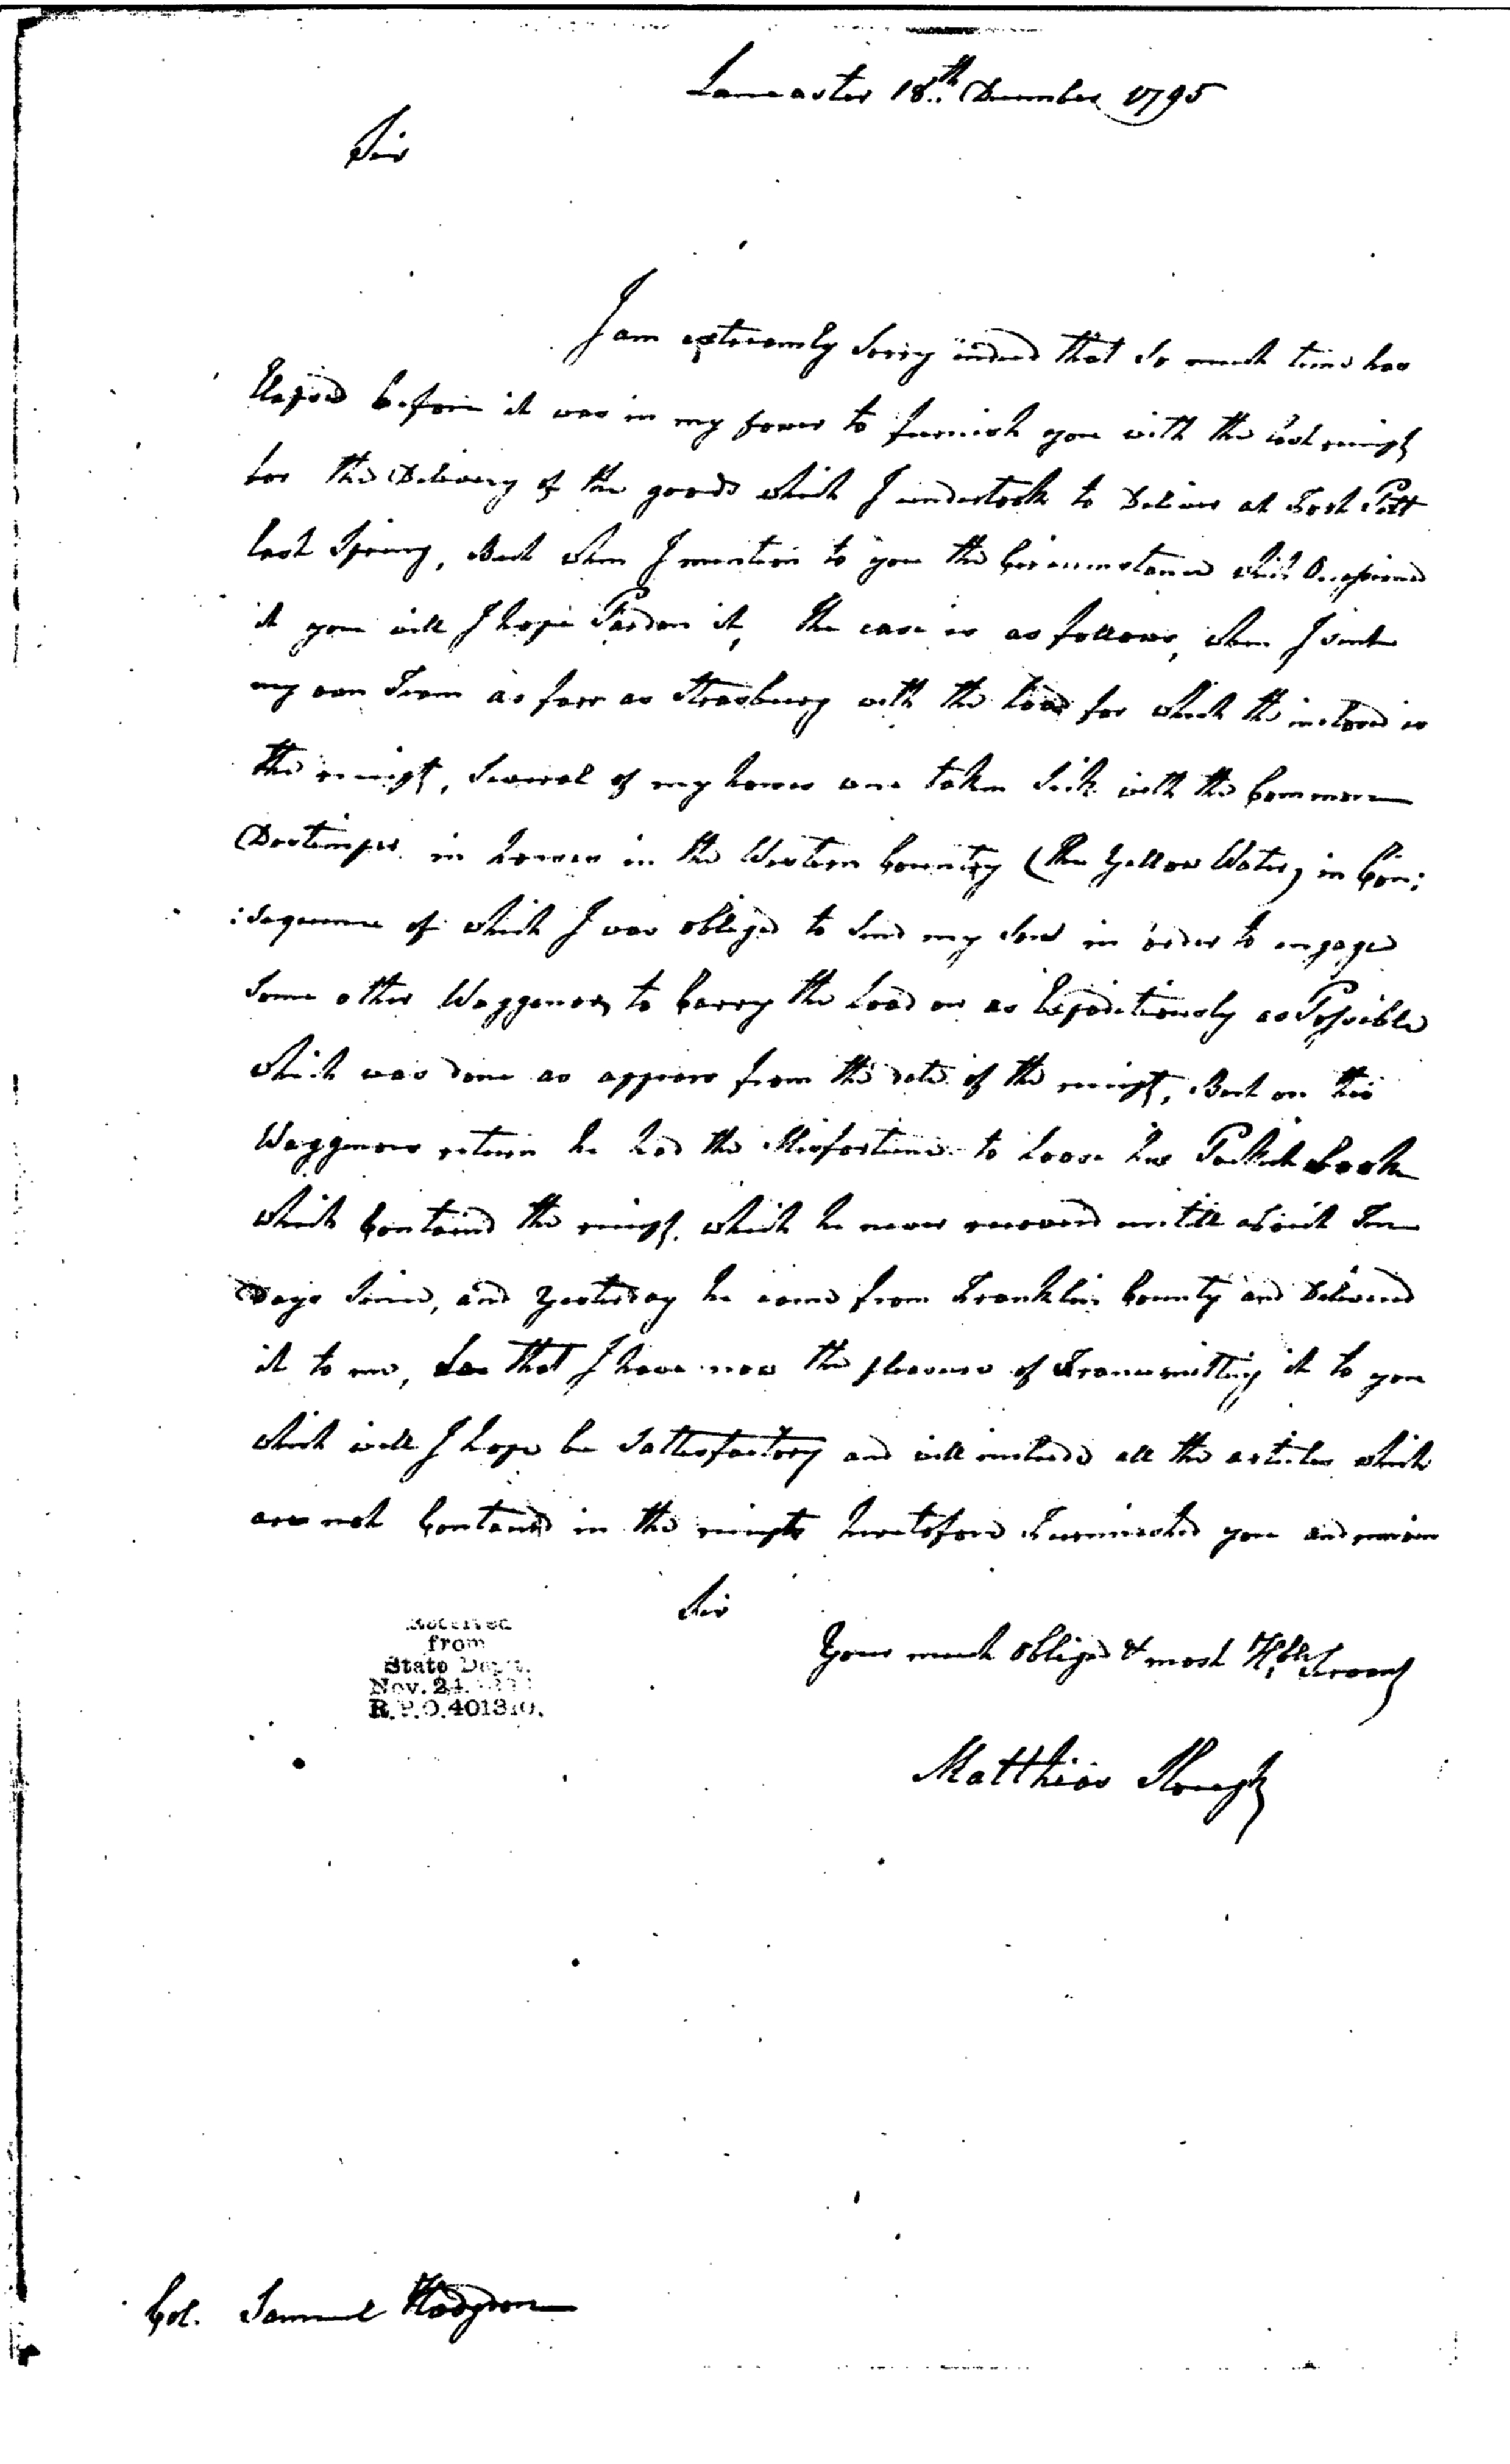 Lancaster 18th December 1795
Sir
I am extreamly Sorry indeed that So much time has
Elapsed before it was in my power to furnish you with the last receipt
for the Delivery of the goods which I undertook to Deliver at Fort Pitt
last Spring, But when I mention to you the Circumstance which Occasioned
it you will I hope Pardon it, the case is as follows, when I sent
my own Team as farr as Strasburg with the Load for which the inclosed is
the receipt, Several of my horses were taken Sick with the Common
Distemper in horses in the Western Country (the Yellow Water) in Con:
:sequence of which I was obliged to Send my Son in order to engage
Some other Waggoner to Carry the Load on as Expeditiously as Possible
which was done as appears from the date of the receipt, But on this
Waggoners return he had the Misfortune to Loose his Pocket Book
which Contained the receipt, which he never recovered untill about Ten
Days Since, and yesterday he came from Franklin County and Delivered
it to me, So that I have now the pleasure of Transmitting it to you
which will I hope be Sattisfactory and will include all the articles which
are not Contained in the receipts heretofore Furnished you and remain
Sir
Your much obliged & most Hble Servant
Matthias Slough
Received
from
State Dept.
Nov. 24.
R.P.O. 401310.
Col. Samuel Hodgdon